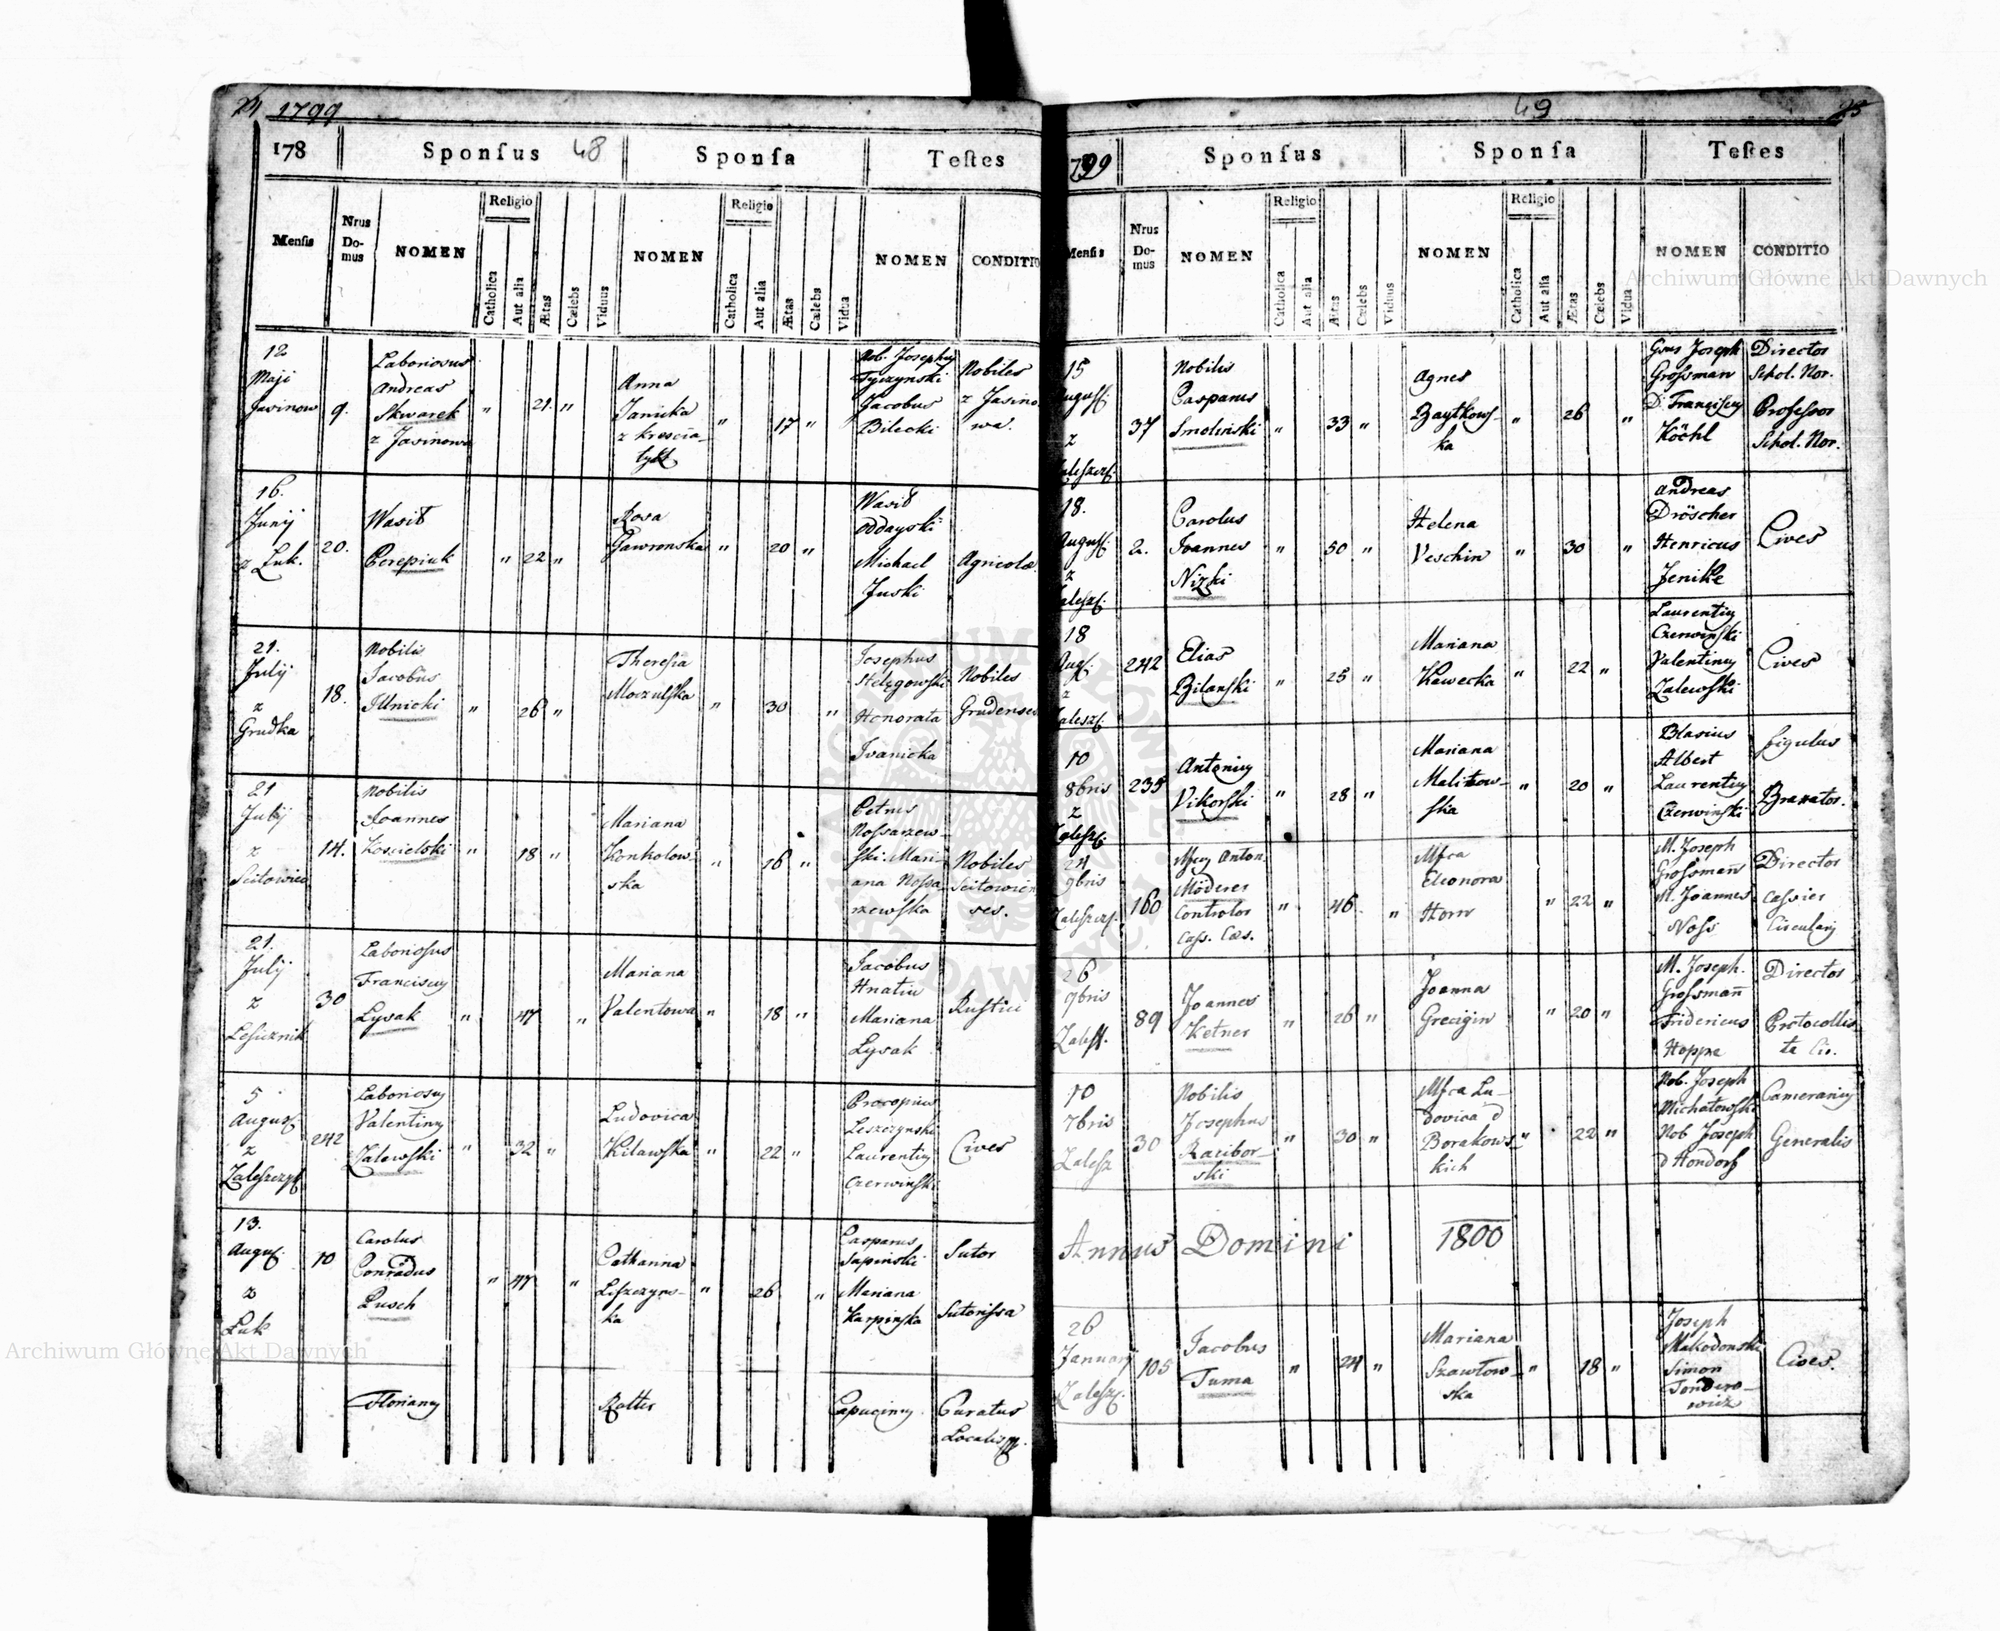 24 1799
178 Sponſus 48 Sponſa Teſtes
Menſis Nrus Do-mus NOMEN Religio Catholica Aut alia Ætas Cælebs Viduus NOMEN Religio Catholica Aut alia Ætas Cælebs Vidua NOMEN CONDITIO
12 Maji Jasinow 9. Laboriosus Andreas Skwarek z Jasinowa " 21 " Anna Janicka z kresciatyk " 17 " Nob. Josephy Tyczynski Jacobus Bilecki Nobiles z Jasinowa.
16. Junij z Łuk. 20. Wasil Perepiuk " 22 " Rosa Gawronska " 20 " Wasil Michael Juski Agricolæ
21. July z Grudka 18. Nobilis Jacobus Illnicki " 26 " Theresia Moczulska " 30 " Josephus Honorata Ivanicka Nobiles Grudenses
21 July z 14. Nobilis Joannes Koscielski " 18 " Mariana Konkolowska " 16 " Petrus Nossarzewski Mariana Nossarzewska Nobiles
21. July z 30 Laboriosus Franciscus Lysak " 47 " Mariana Valentowa " 18 " Jacobus Hnatiu Mariana Lysak Rustici
5 August z Zaleszczyk 242 Laboriosus Valentiny Zalewski " 32 " Ludovica Kilawska " 22 " Procopius Leszczynski Laurentiy Czerwinski Cives
13. August z Łuk 10 Carolus Conradus Pusch " 47 " Catharina Liszczynska " 26 " Casparus Sapinski Mariana Karpinska Sutor Sutorissa
Floriany Rotter Capuciny Curatus Localis
49 25
799 Sponſus Sponſa Teſtes
Menſis Nrus Do-mus NOMEN Religio Catholica Aut alia Ætas Cælebs Viduus NOMEN Religio Catholica Aut alia Ætas Cælebs Vidua NOMEN CONDITIO
15 August z 37 Nobilis Casparus Smolinski " 33 " Agnes Baytkowska 26 " Joseph Grossman D. Franciscy Köchl Director Schol. Nor. Professor Schol. Nor.
18. August z 2. Carolus Joannes Nizki " 50 " Helena Veschin " 30 " Andreas Dröscher Henricus Jenike Cives
18 Aug. z Zalesz. 242 Elias Bilanski " 25 " Mariana Kawecka " 22 " Laurentiy Czerwinski Valentiny Zalewski Cives
10 8bris z Zalesz. 235 Antoniy Vikorski " 28 " Mariana Malinowska " 20 " Blasius Albert Laurentiy Czerwinski figulus Braxator.
24 9bris Zaleszcz. 160 Anton. Möderer Controlor Cass. Cæs. " 46 " Mfca Eleonora Horn " 22 " M. Joseph Grossmañ M. Joannes Noss Director Cassier Circulariy
26 9bris Zalesz. 89 Joannes Ketner " 26 " Joanna Grecigin " 20 " M. Joseph. Grossmañ Fridericus Hoppe Director Protocollista Cir.
10 7bris Zalesz 30 Nobilis Josephus Raciborski " 30 " Mfca Ludovica d Borakowskich " 22 " Nob. Joseph Michałowski Nob Joseph d Hondorf Camerariy Generalis
Annus Domini 1800
26 January Zalesz. 105 Jacobus Tuma " 24 " Mariana Szawłowska " 18 " Joseph Makodonski Simon Cives.
Archiwum Główne Akt Dawnych
Archiwum Główne Akt Dawnych